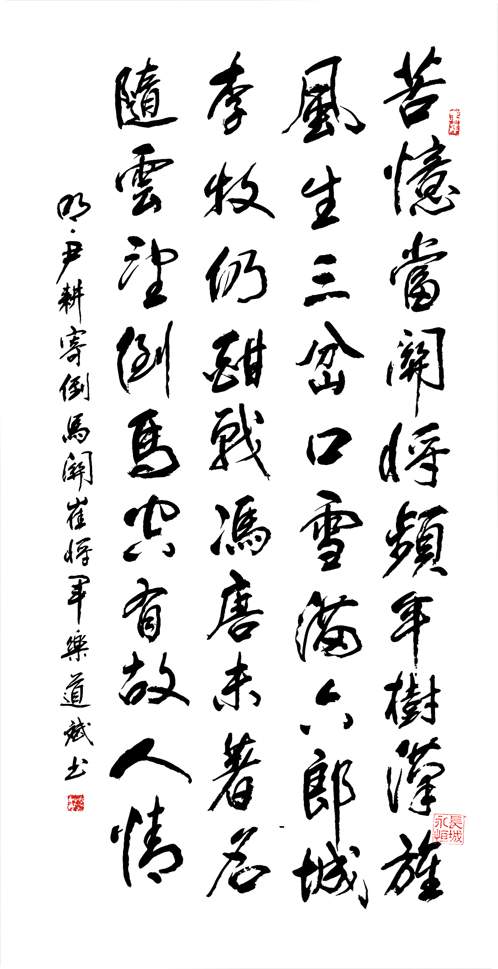 苦憶當關將頻年樹漢旌
風生三岔口雪滿六郎城
李牧仍酣戰馮唐未著名
隨雲望倒馬空有故人情
明·尹耕寄倒馬關崔將軍樂道斌书
長城永恒